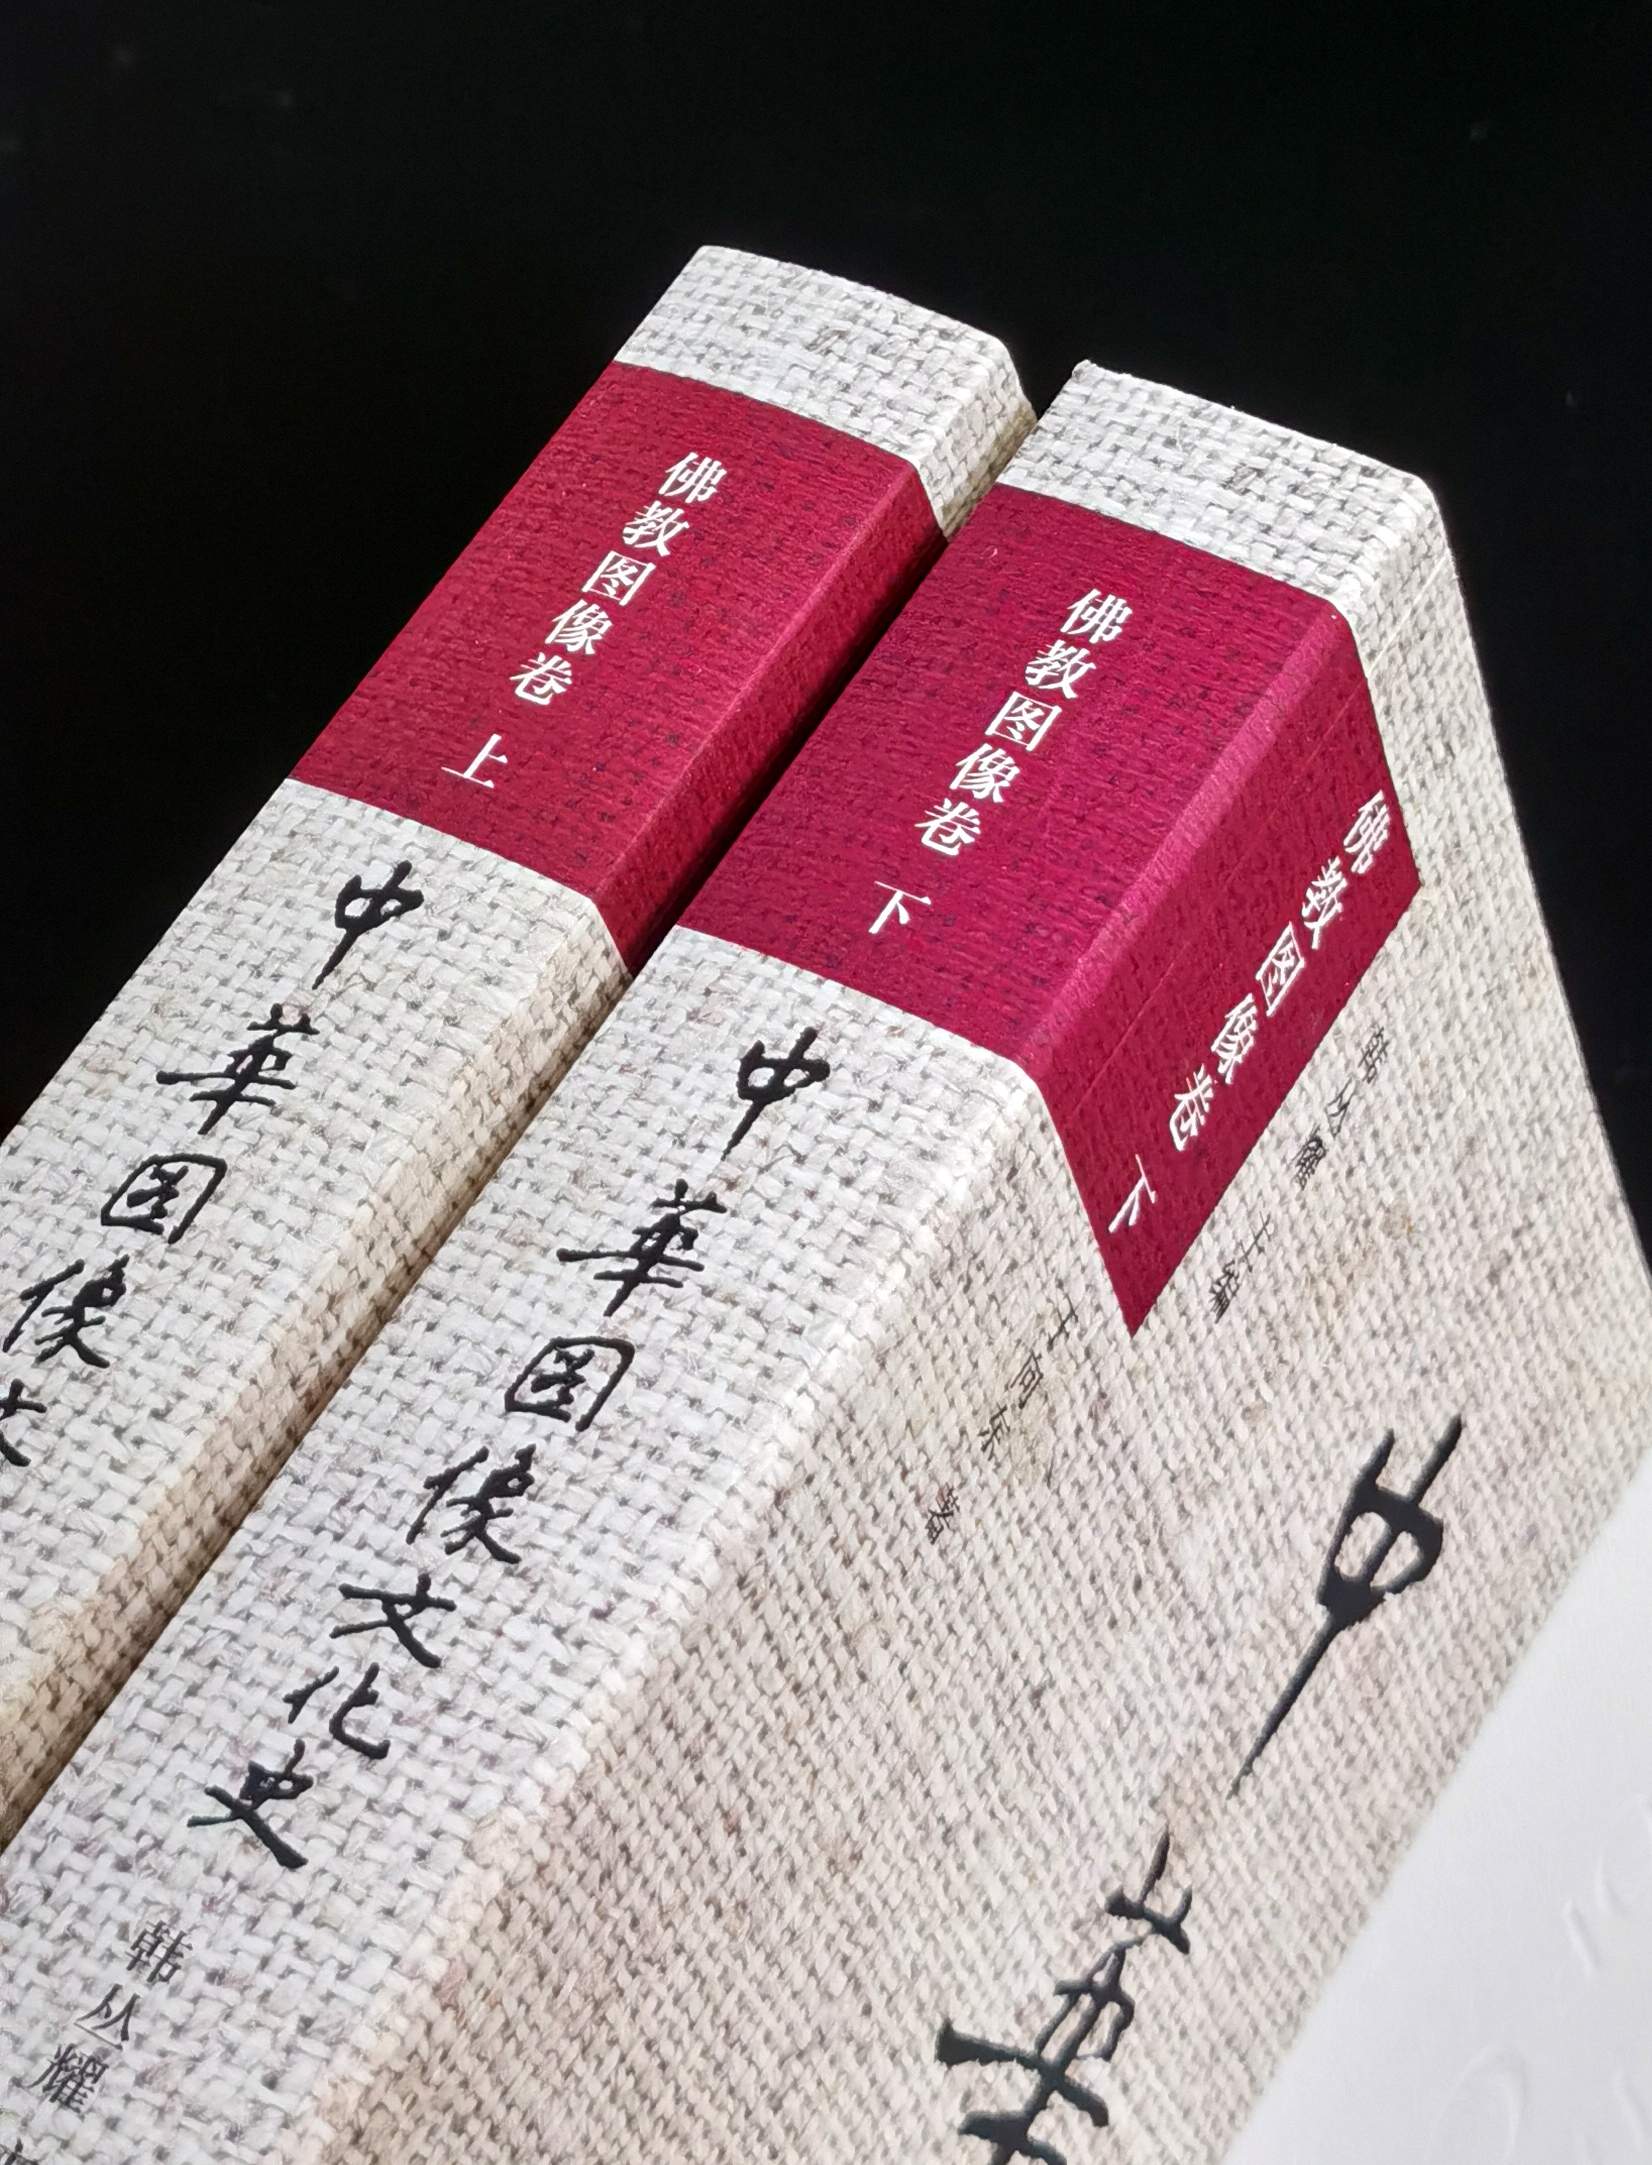 佛教图像卷 上
中華图像文
佛教图像卷 下
中華图像文化史
韩丛耀
佛教图像卷 下
韩丛耀 主编
于向东 著
中華